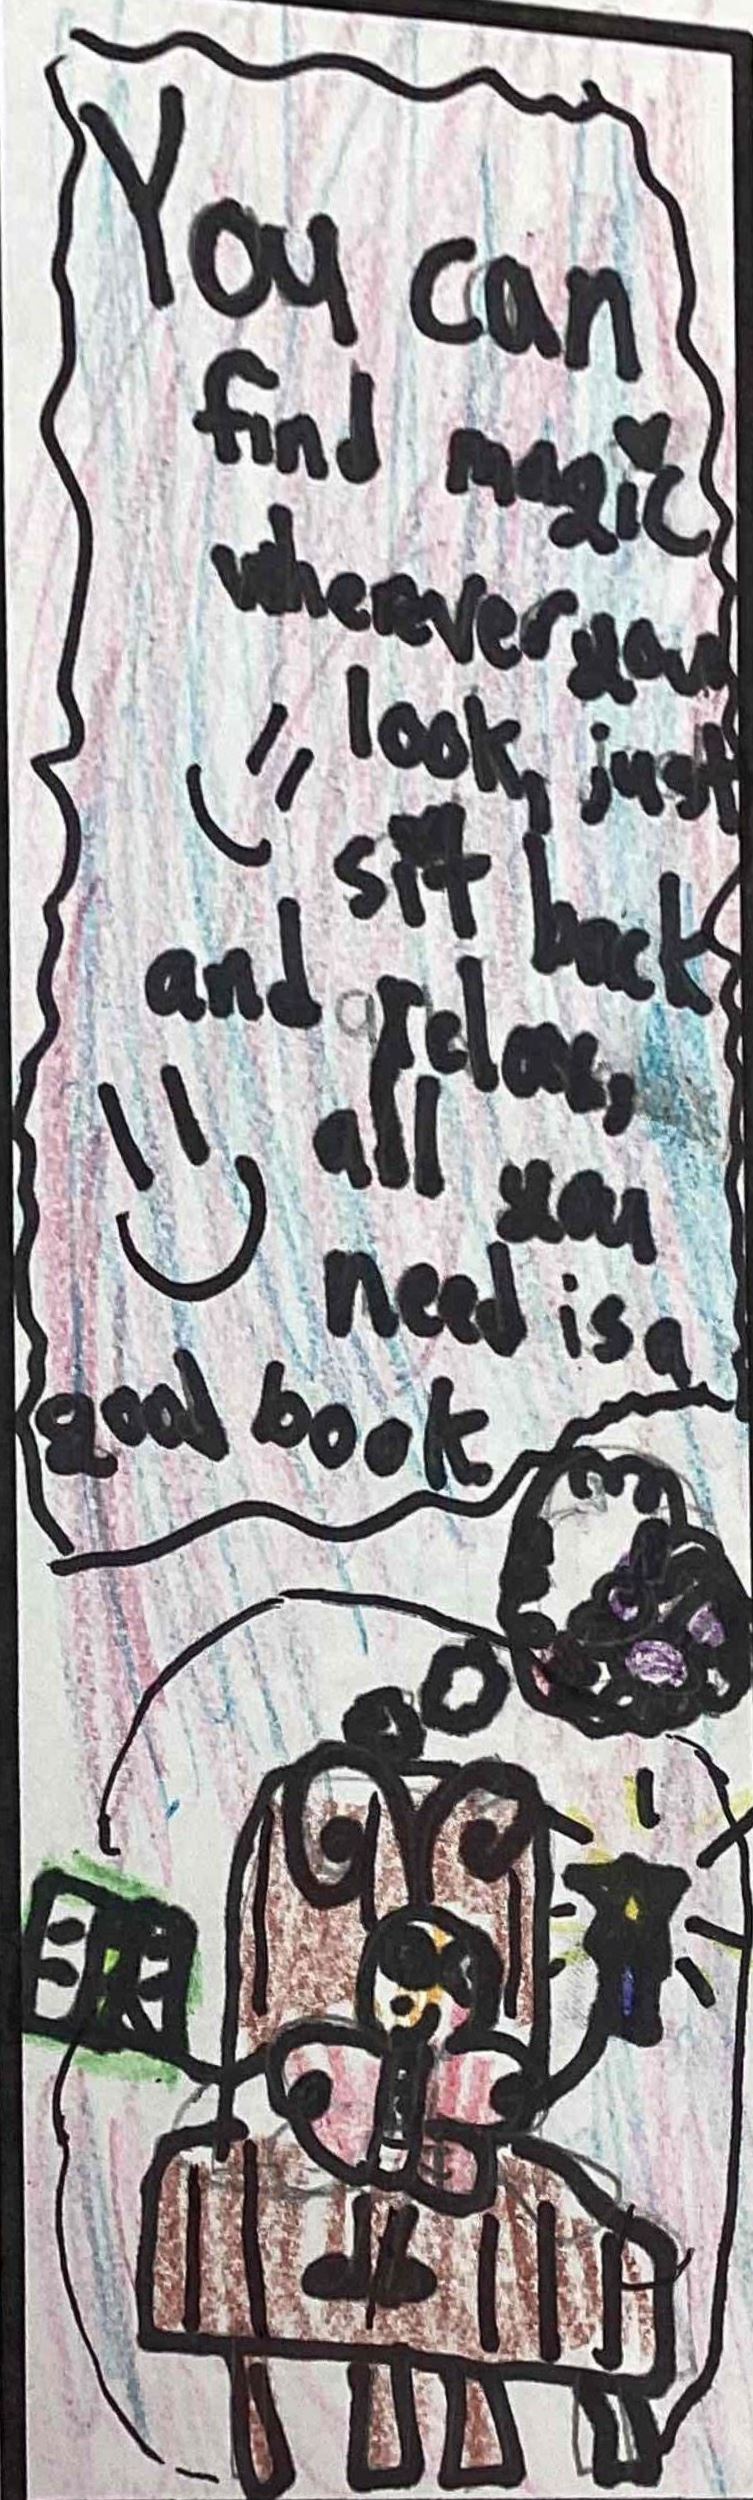 You can
find magic
wherever you
look, just
sit back
and relax,
all you
need is a
good book